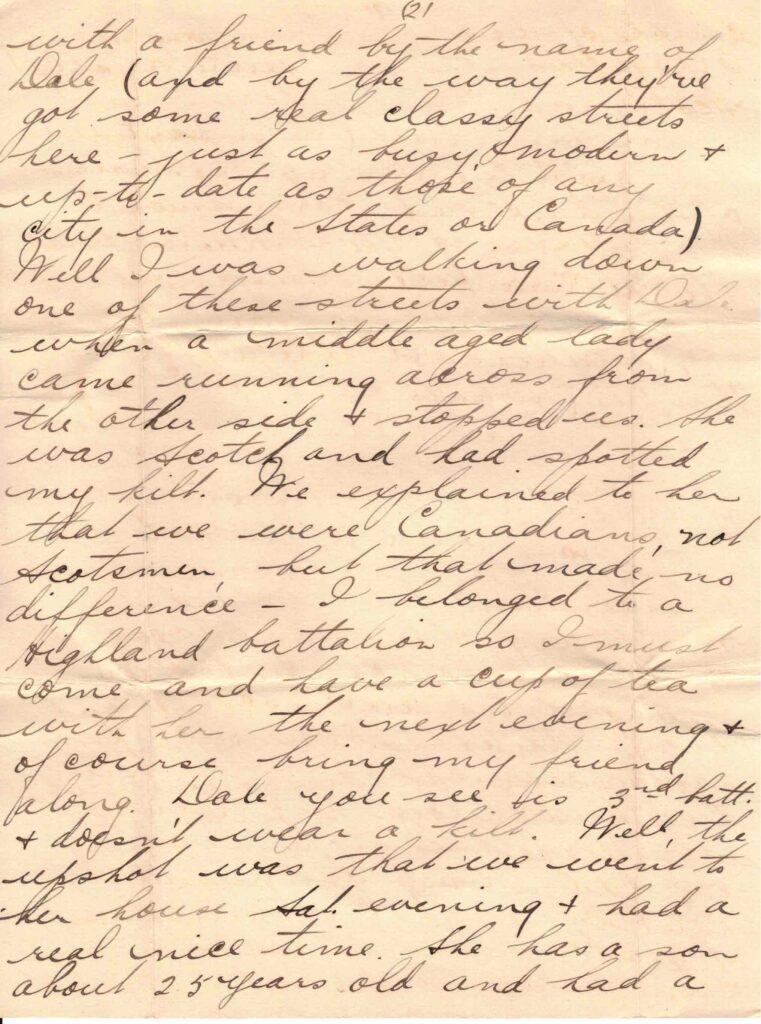 (2)
with a friend by the name of
Dale (and by the way they've
got some real classy streets
here - just as busy & modern +
up-to-date as those of any
city in the States or Canada)
Well I was walking down
one of these streets with Dale
when a middle aged lady
came running across from
the other side + stopped us. She
was Scotch and had spotted
my kilt. We explained to her
that we were Canadians, not
Scotsmen, but that made no
difference - I belonged to a
Highland battalion so I must
come and have a cup of tea
with her the next evening +
of course bring my friend
along. Dale you see is 3rd batt.
+ doesn't wear a kilt. Well, the
upshot was that we went to
her house Sat. evening + had a
real nice time. She has a son
about 25 years old and had a